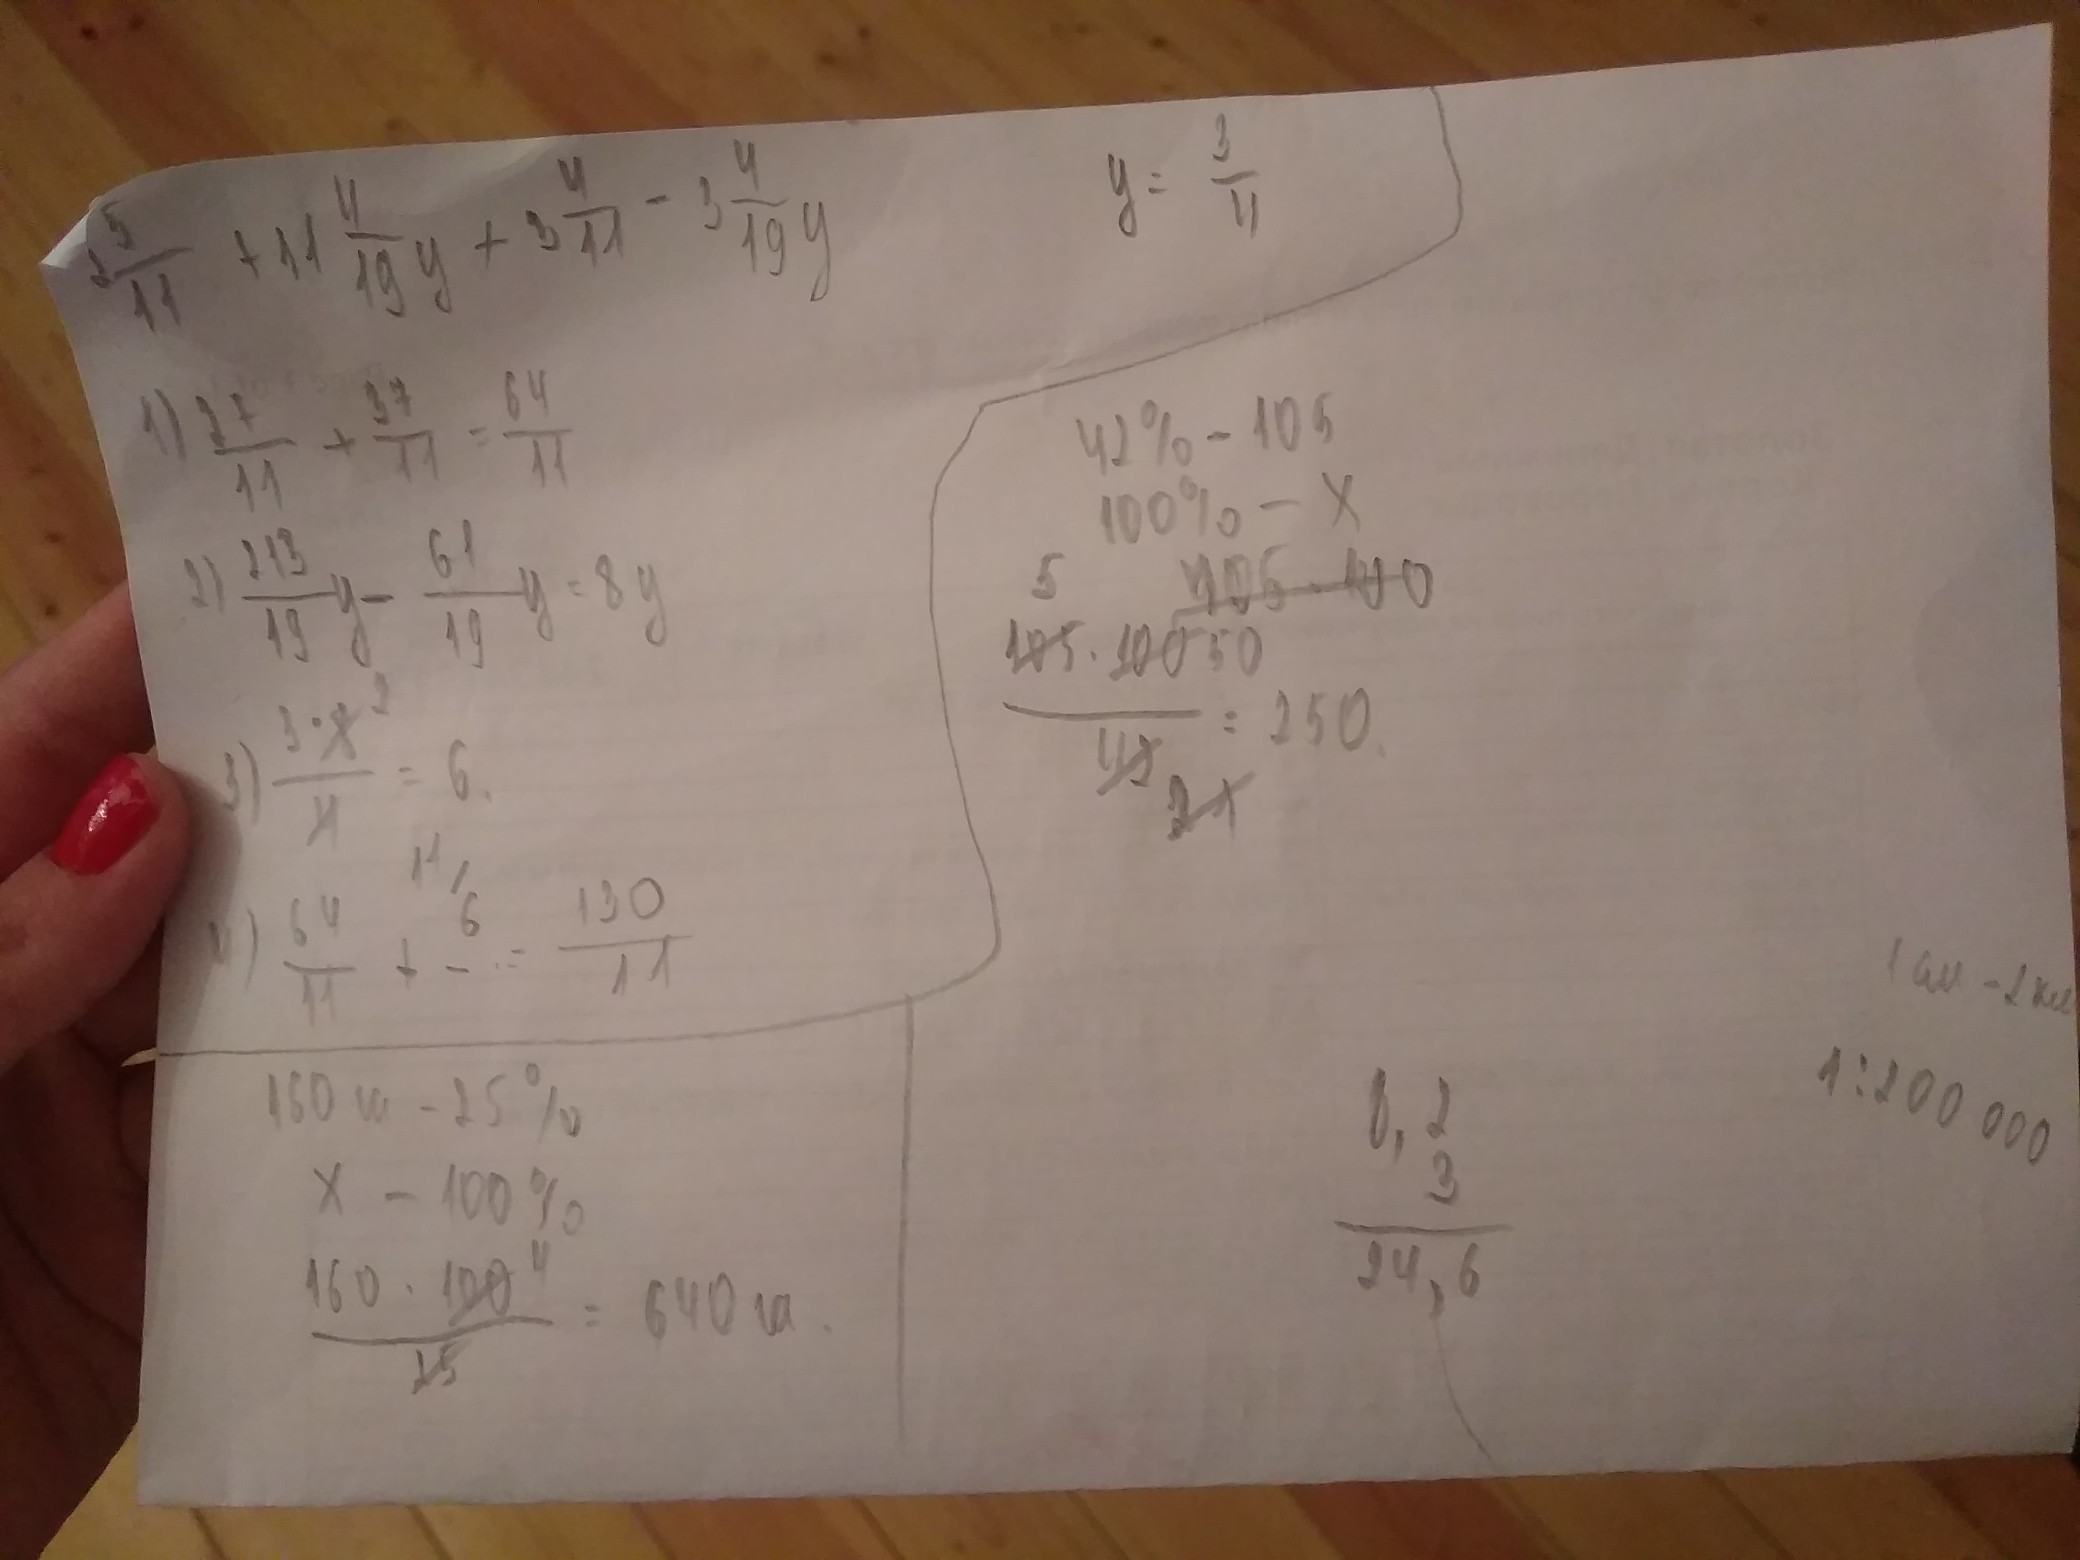 2 5/11 + 11 4/19 y + 3 4/11 - 3 4/19 y
y = 3/4
1) 27/11 + 37/11 = 64/11
2) 213/19 y - 61/19 y = 8y
3) 3·8 2 / 4 = 6.
4) 64/11 + 11/ 6/- = 130/11
42% - 105
100% - x
5
105·100
105·100 50
42 = 250.
21
160 ш - 25%
x - 100%
160·100 4 / 25 = 640 ш.
8,2
3
24,6
1 см - 2 км
1:200 000